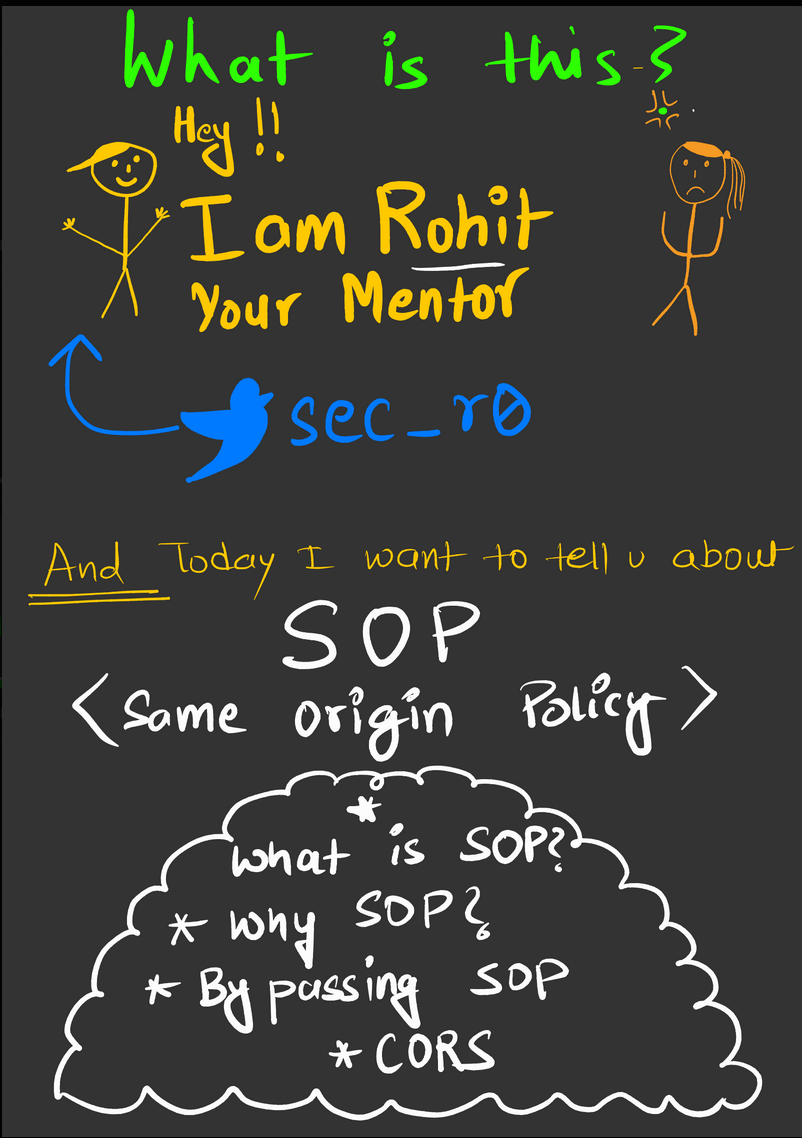 What is this-?
Hey !!
I am Rohit
Your Mentor
sec_r0
And Today I want to tell u about
SOP
<Same origin Policy>
*
what is SOP?
* why SOP?
* By passing SOP
* CORS